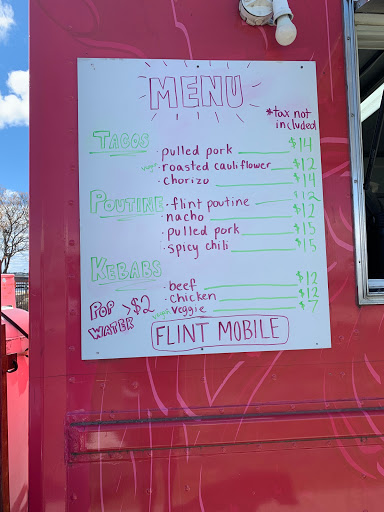 MENU
*tax not
included
TACOS
• pulled pork $14
vege • roasted cauliflower $12
• Chorizo $14
POUTINE
• flint poutine $12
• nacho $12
• pulled pork $15
• spicy chili $15
KEBABS
• beef $12
• chicken $12
vege • veggie $7
POP
WATER > $2
FLINT MOBILE